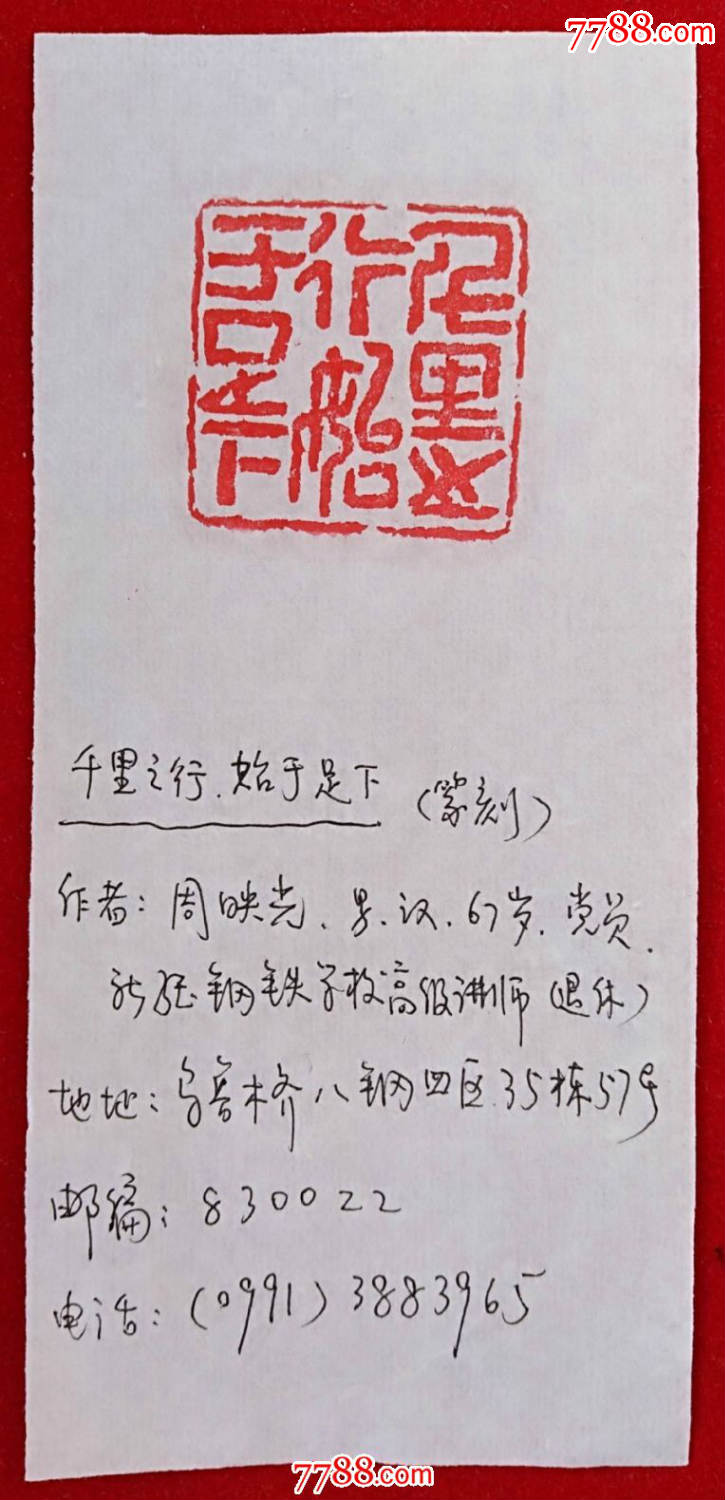 7788.com
千里之行始于足下
千里之行、始于足下(篆刻)
作者:周映光、男、汉、67岁、党员、
新疆钢铁学校高级讲师(退休)
地址:乌鲁木齐八钢四区35栋57号
邮编:830022
电话:(0991)3883965
7788.com